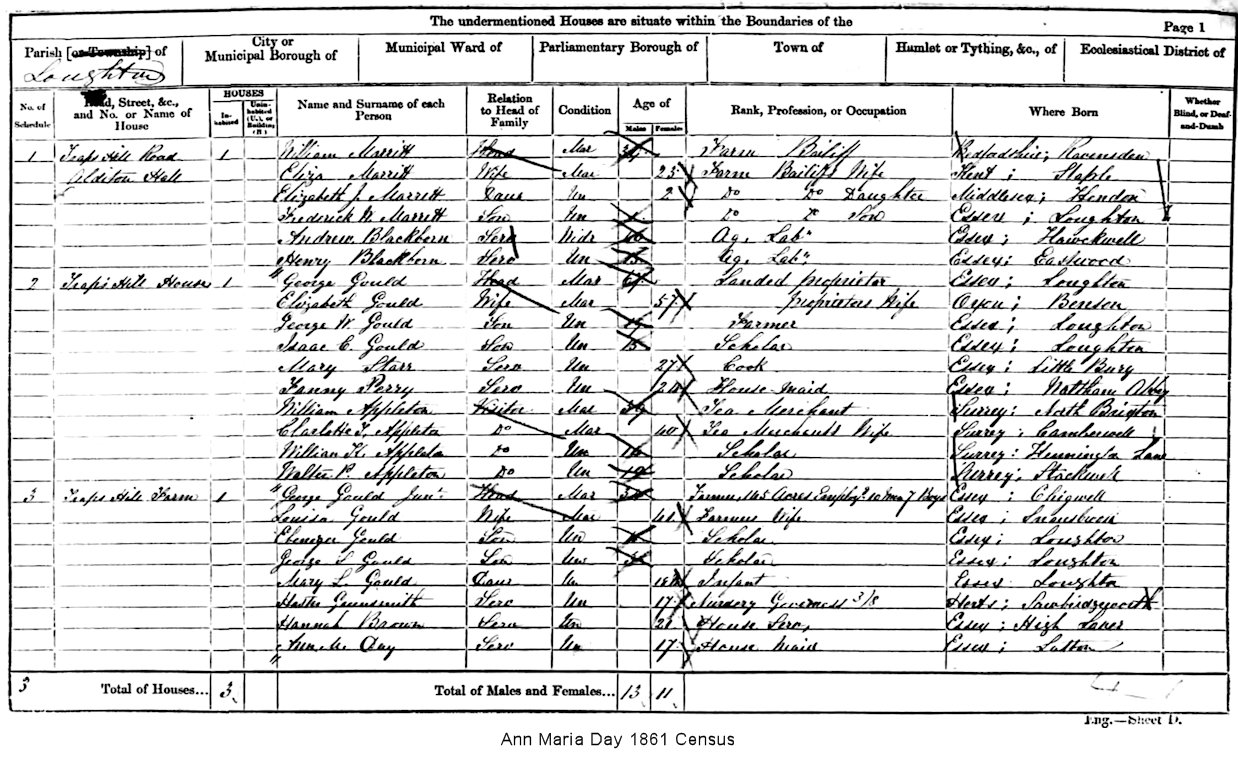 The undermentioned Houses are situate within the Boundaries of the
Page 1
Parish [or Township] of Loughton
City or Municipal Borough of
Municipal Ward of
Parliamentary Borough of
Town of
Hamlet or Tything, &c., of
Ecclesiastical District of
No. of Schedule
Road, Street, &c., and No. or Name of House
HOUSES
Inhabited
Uninhabited (U.), or Building (B)
Name and Surname of each Person
Relation to Head of Family
Condition
Age of
Males
Females
Rank, Profession, or Occupation
Where Born
Whether Blind, or Deaf-and-Dumb
1 Traps Hill Road 1 William Marritt Head Mar Farm Bailiff Bedfordshire; Ravensden
Hall Eliza Marritt Wife Mar 25 Farm Bailiffs Wife Kent; Staple
Elizabeth J. Marrett Daur Un 2 Do Do Daughter Middlesex; Hendon
Frederick W. Marrett Son Un Do Do Son Essex; Loughton
Andrew Blackborn Serv Widr Ag. Labr Essex; Hawckwell
Henry Blackborn Serv Un Ag. Labr Essex; Eastwood
2 Traps Hill House 1 George Gould Head Mar Landed Proprietor Essex; Loughton
Elizabeth Gould Wife Mar 57 Proprietors Wife Oxon; Benson
George W. Gould Son Un Farmer Essex; Loughton
Isaac C. Gould Son Un Scholar Essex; Loughton
Mary Starr Serv Un 27 Cook Essex; Little Bury
Fanny Perry Serv Un House-maid Essex; Waltham Abbey
William Appleton Visitor Mar Tea Merchant Surrey; North Brixton
Charlotte Appleton Do Mar 40 Tea Merchants Wife Surrey; Camberwell
William Appleton Do Un Scholar Surrey; Lane
Walter P. Appleton Do Un Scholar Surrey; Stockwell
3 Traps Hill Farm 1 George Gould Junr Head Mar Farmer, 165 Acres 7 Boys Essex; Chigwell
Louisa Gould Wife Mar Farmers Wife Essex;
Ebenezer Gould Son Un Scholar Essex; Loughton
George Gould Son Un Scholar Essex; Loughton
Mary L. Gould Daur Un Infant Essex Loughton
Greensmith Serv Un 17 Nursery Governess Herts; Sawbridgeworth
Hannah Brown Serv Un House Serv, Essex; High Laver
Ann M. Day Serv Un 17 House Maid Essex; Latton
3 Total of Houses... 3 Total of Males and Females... 13 11
Eng.—Sheet D.
Ann Maria Day 1861 Census